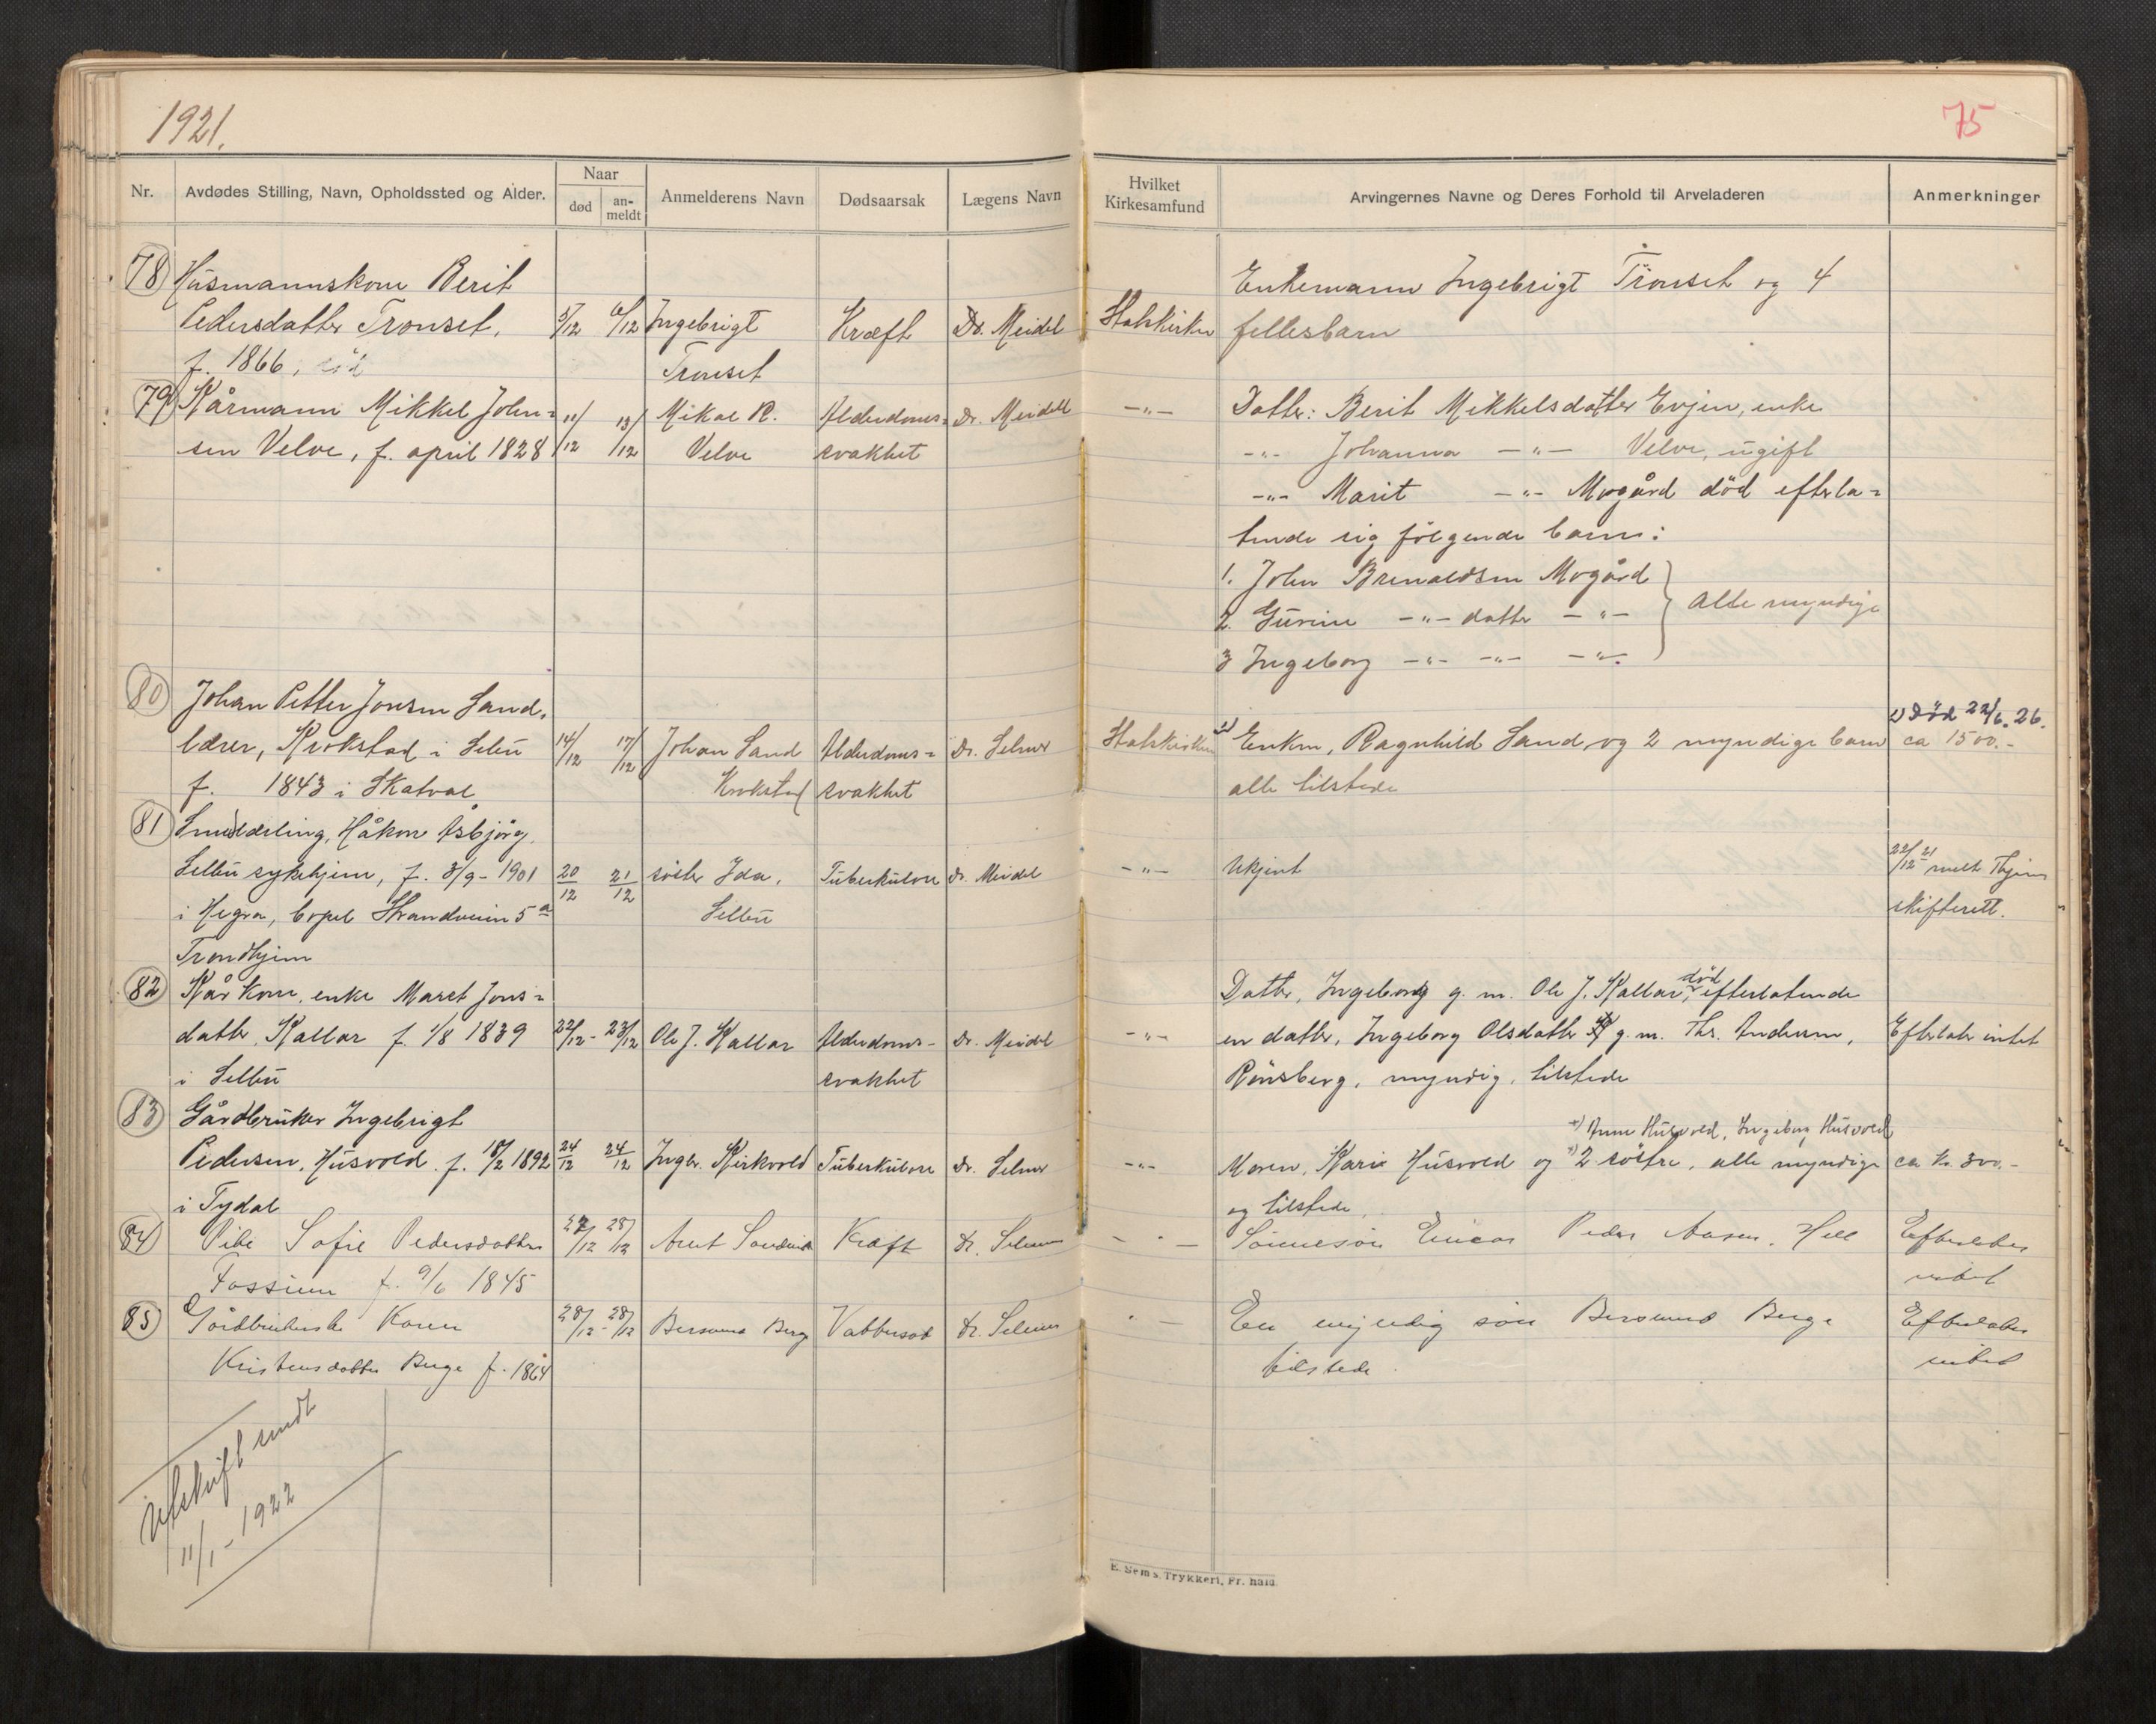 1921.
75
Nr.
Avdødes Stilling, Navn, Opholdssted og Alder.
Naar
død
an-
meldt
Anmelderens Navn
Dødsaarsak
Lægens Navn
Hvilket
Kirkesamfund
Arvingernes Navne og Deres Forhold til Arveladeren
Anmerkninger
78 Husmannskone Berit
Pedersdatter Tronset, 5/12 6/12 Ingebrigt Kræft Dr. Meidel Statskirken
f. 1866, Tronset
Enkemann Ingebrigt Trönset og 4
fellesbarn
79 Kårmann Mikkel John=
sen Velve, f. april 1828 11/12 13/12 Mikal R. Alderdoms= Dr. Meidell -"-
Velve svakhet
Datter: Berit Mikkelsdatter Evjen, enke
-"- Johanna -"- Velve, ugift
-"- Marit -"- Mogård död efterla=
tende sig fölgende barn:
1. John Mogård
2. Gurine -"- datter -"-
3 Ingeborg -"- -"- -"-
Alle myndige
80 Johan Petter Jonsen Sand,
lærer, Krokstad i Selbu 14/12 17/12 Johan Sand Alderdoms= Dr. Selmer Statskirken
f. 1843 i Skatval Krokstad svakhet
1) Enken, Ragnhild Sand og 2 myndige barn
alle tilstede
1) Död 22/6. 26.
ca 1500.-
81 Smedlærling, Håkon Asbjörg,
Selbu sykehjem, f. 3/9 - 1901 20/12 21/12 söster Ida, Tuberkulose Dr. Meidel -"-
i Hegra, bopel Strandveien 5a Selbu
Trondhjem
Ukjent
22/12 21 melt Thjems
skifterett.
82 Kårkone, enke Maret Jons=
datter, Kallar f. 1/8 1839 22/12 - 23/12 Ole J. Kallar Alderdoms- Dr. Meidel -"-
i Selbu svakhet
Datter, Ingeborg g. m. Ole J. Kallar, död efterlatende
en datter, Ingeborg Olsdatter g. m. Thr. Andersen,
Rönsberg, myndig, tilstede
Efterlater intet
83 Gårdbruker Ingebrigt
Pedersen, Husvold f. 18/2 1892 24/12 24/12 Ingbr. Kirkvold Tuberkulose Dr. Selmer -"-
i Tydal
x) Anne Husvold, Ingeborg Husvold
Moren, Kari Husvold og x) 2 söstre, alle myndige
og tilstede.
ca kr. 300.-
84 Pike Sofie Pedersdatter 27/12 28/12 Arnt Kræft Dr. Selmer - " -
Fossum f. 9/6 1845
Sönnesön Einar Peder Aasen, Hell
Efterlater
intet
85 Gårdbrukerske Karen 28/12 - 28/12 Bersvend Berge Vattersot Dr. Selmer " -
Kristensdatter Berge f. 1864
En myndig sön Bersvend Berge
tilstede.
Efterlater
intet
Utskrift sendt
11/1 - 1922
E. Sems Trykkeri, Fr. hald.